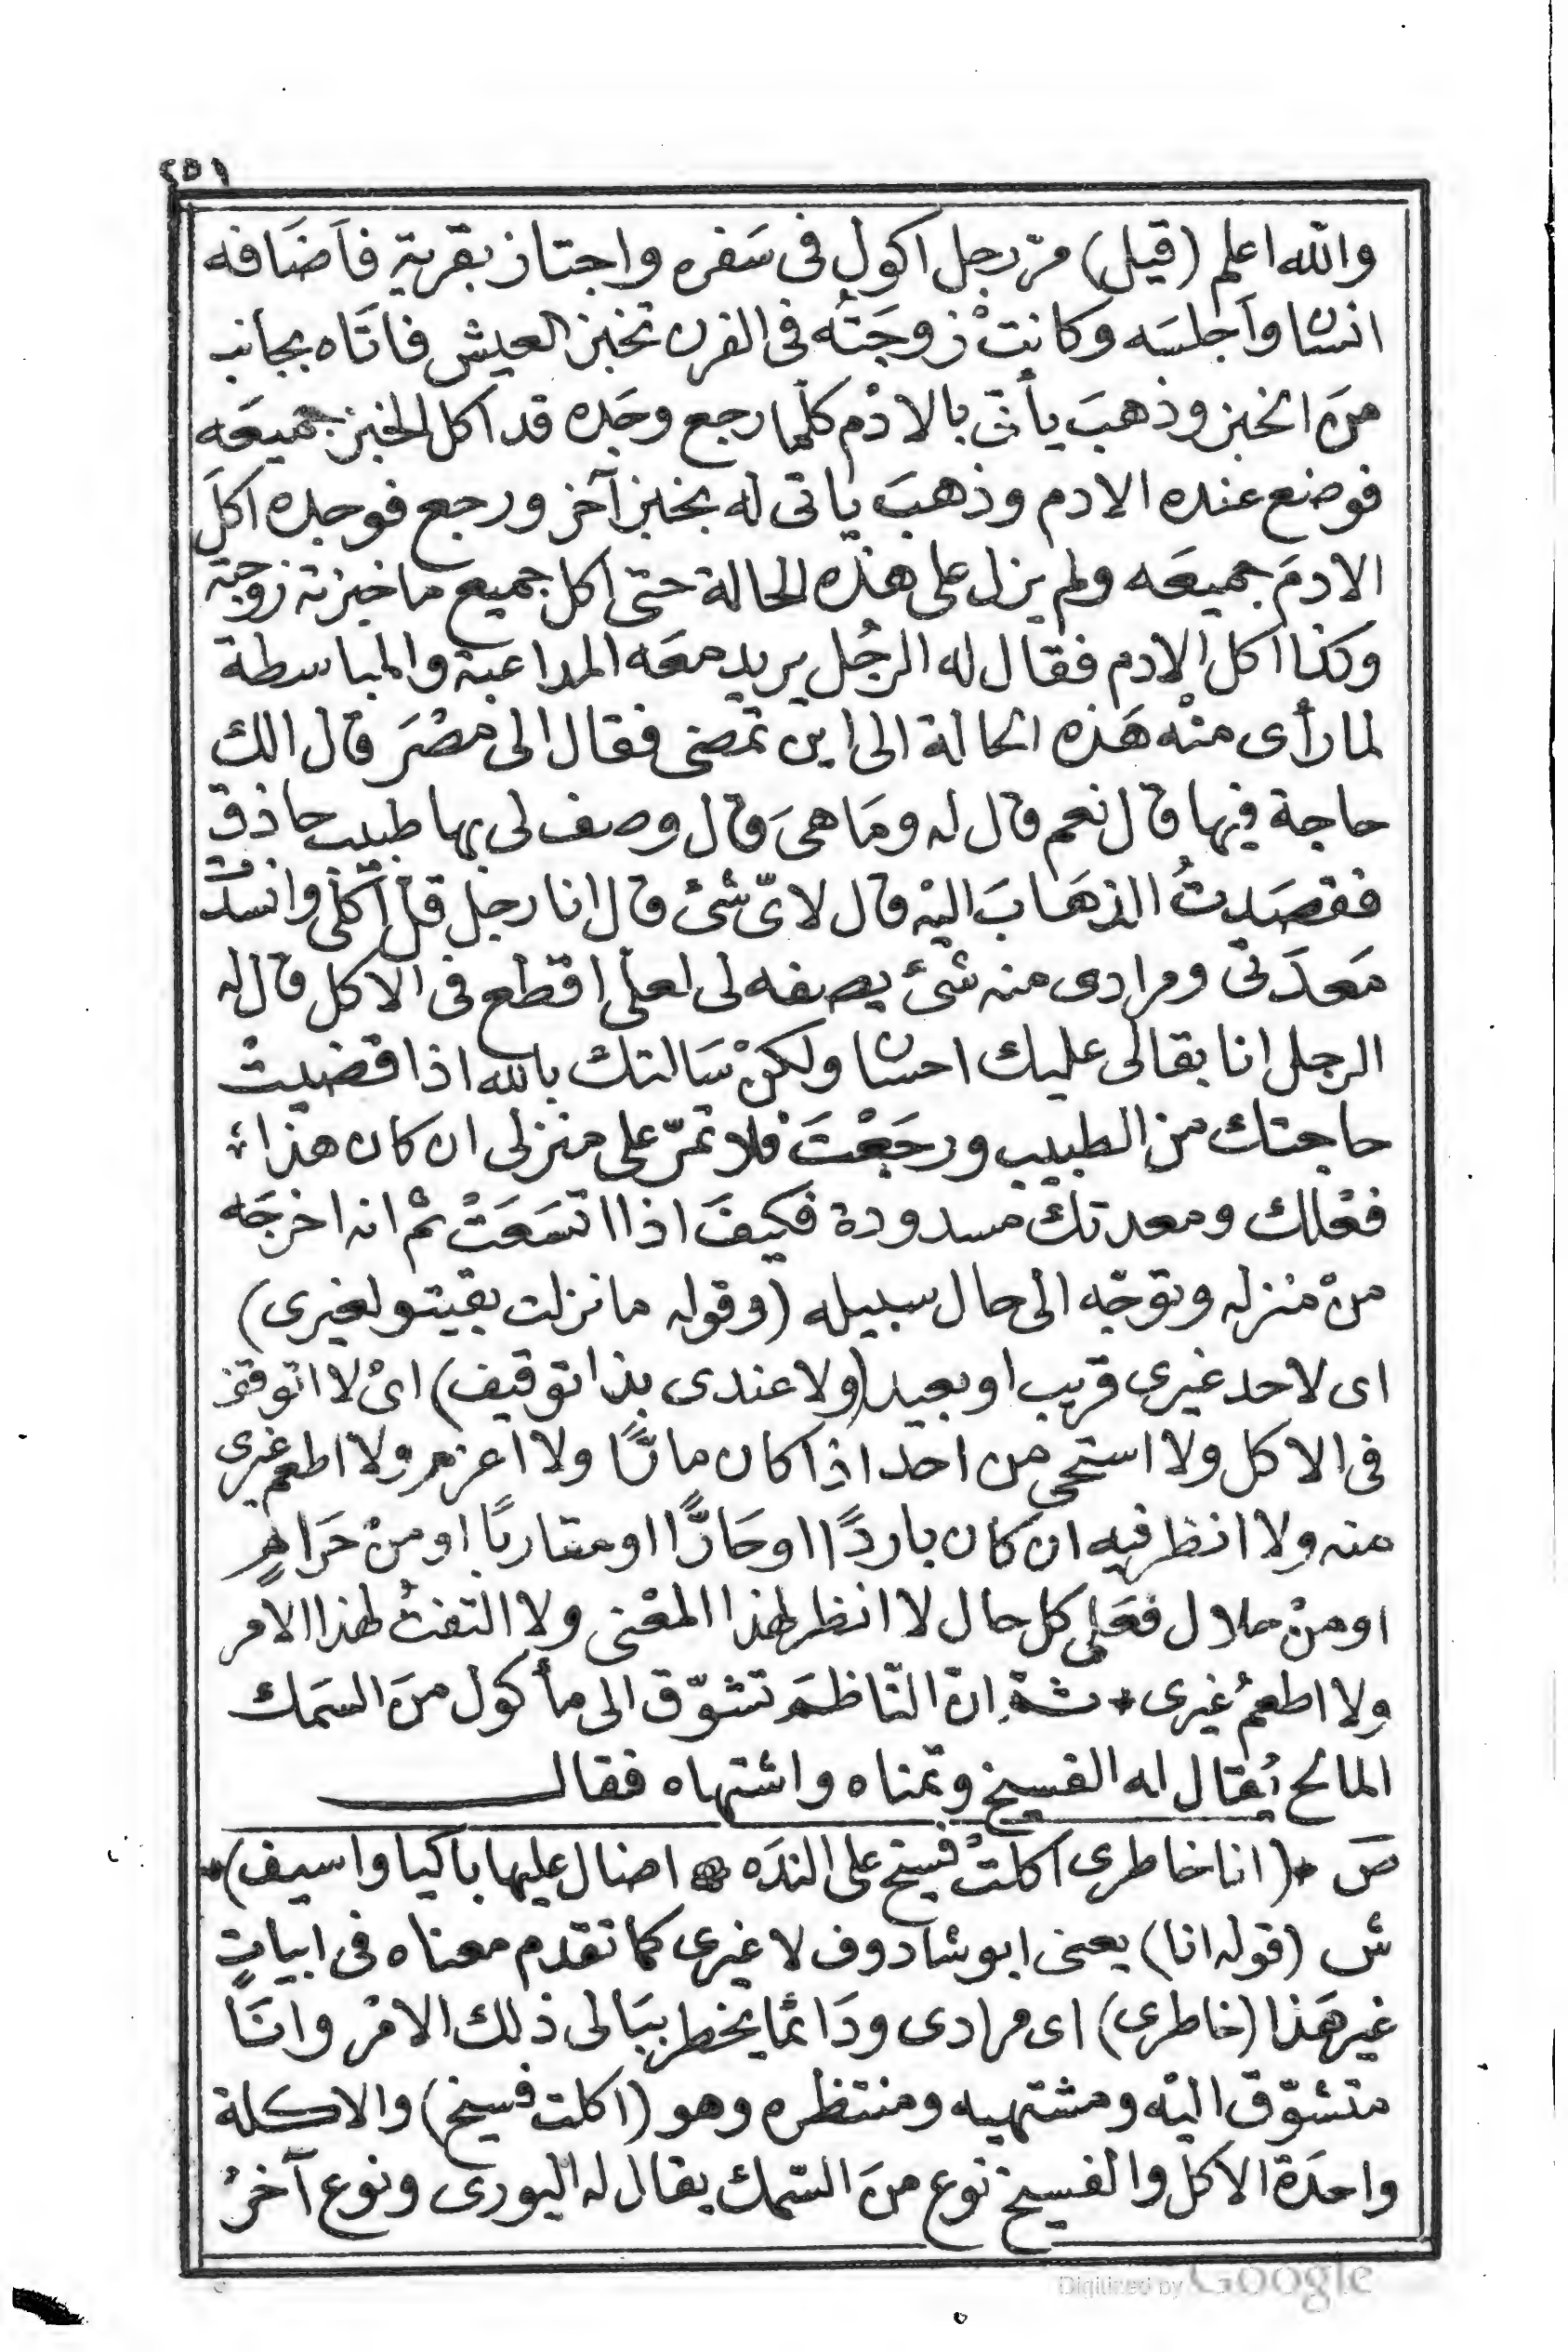 ٢٥١
والله اعلم (قيل) مرّ رجل اكول فى سَفره واجتاز بقرية فاَضَافه
انسان واَجلسَه وكانتْ زوجَتُه فى الفرن تخبز العيش فاتَاه بجانب
منَ الخبز وذهبَ يأتى بالادْم كلّما رجع وجَده قد اكل الخبز جميعَه
فوضع عنده الادم وذهبَ ياتى له بخبز آخر ورجع فوجده اكلَ
الادمَ جميعَه ولم يزل على هذه الحالة حتى اكل جميع ما خبزته زوجته
وكذا اكل الادم فقال له الرجُل يريد معَه المداعبة والمباسطة
لما رأى منْه هَذه الحالة الى اين تمضى فقال الى مصْرَ قال الك
حاجة فيها قال نعم قال له ومَا هىَ قال وصف لى بها طبيب حاذق
فقصَدتُ الذهَابَ اليْه قال لاىّ شئ قال انا رجل قلّ اكلى وانسدّت
مَعدَتى ومرادى منه شئ يصفه لى لعلى اقطع فى الاكل قال له
الرجل انا بقالى عليك احسان ولكنْ سَالتك بالله اذا قضيتْ
حاجتك من الطبيب ورجَعْتَ فلا تمرّ على منزلى ان كان هذا
فعْلك ومعدتك مسدودة فكيفَ اذا اتسَعَتْ ثم انه اخرجَه
منْ منزله وتوجّه الى حال سبيله (وقوله ما نزلت بقيتو لغيرى)
اى لاحد غيرى قريب او بعيد (ولا عندى بذا توقيف) اىْ لا اتوقف
فى الاكل ولا استحى من احد اذا كان مارًّا ولا اعزم ولا اطعم غيرى
منه ولا انظر فيه ان كان باردًا او حَارًّا او متقاربًا او منْ حَرَامٍ
او منْ حلال فعَلى كل حال لا انظر لهذا المعْنى ولا التفتُ لهذا الامر
ولا اطعمُ غيرى * ثمّ انّ النّاظمَ تشوّق الى مأكول منَ السَمك
المالح يُقال له الفسيخ وتمناه واشتهاه فقال
صَ * (انا خاطرى اكلتْ فسيخ على الندَه * اضال عليها باكيا واسيف) *
ش (قوله انا) يعنى ابو شادوف لا غيرى كما تقدم معناه فى ابياتٍ
غير هَذا (خاطرى) اى مرادى ودَائما يخطر ببَالى ذلك الامْر وانَا
متشوّق اليْه ومشتهيه ومنتظره وهو (اكلت فسيخ) والاكلة
واحدَة الاكل والفسيخ نوع منَ السّمك يقال له البورى ونوع آخرُ
Digitized by Google